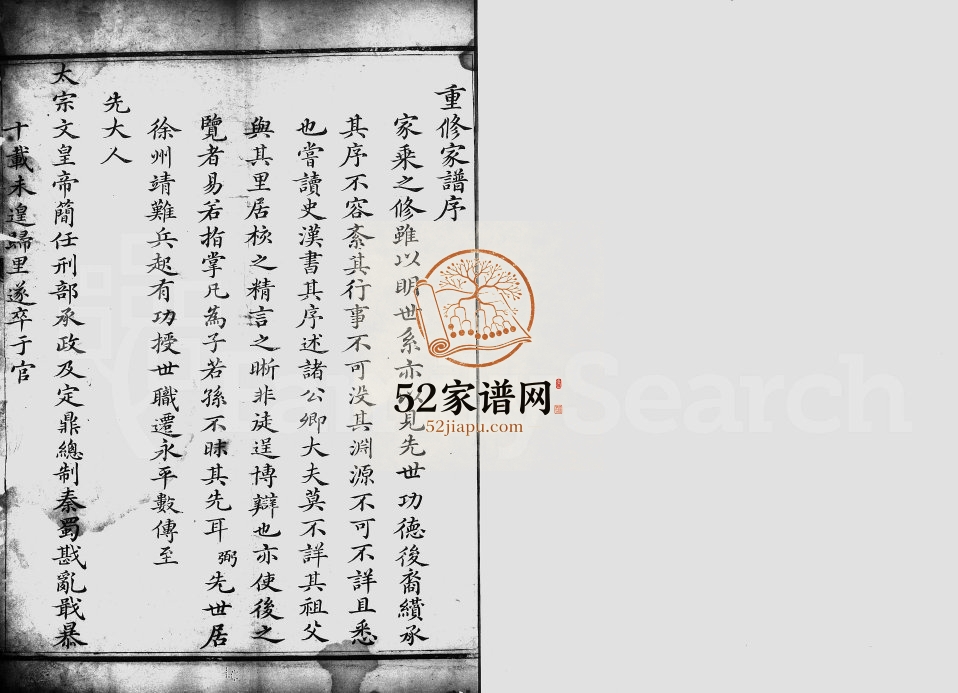 重修家譜序
家乘之修雖以明世系亦見先世功德後裔纘承
其序不容紊其行事不可没其淵源不可不詳且悉
也嘗讀史漢書其序述諸公卿大夫莫不詳其祖父
與其里居核之精言之晰非徒逞博辯也亦使後之
覽者易若指掌凡為子若孫不昧其先耳 弼先世居
徐州靖難兵起有功授世職遷永平數傳至
先大人
太宗文皇帝簡任刑部承政及定鼎總制秦蜀戡亂戢暴
十載未遑歸里遂卒于官
52家谱网
52jiapu.com
FamilySearch